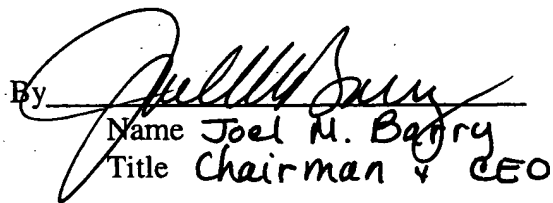 By Joel M Barry
Name Joel M. Barry
Title Chairman & CEO